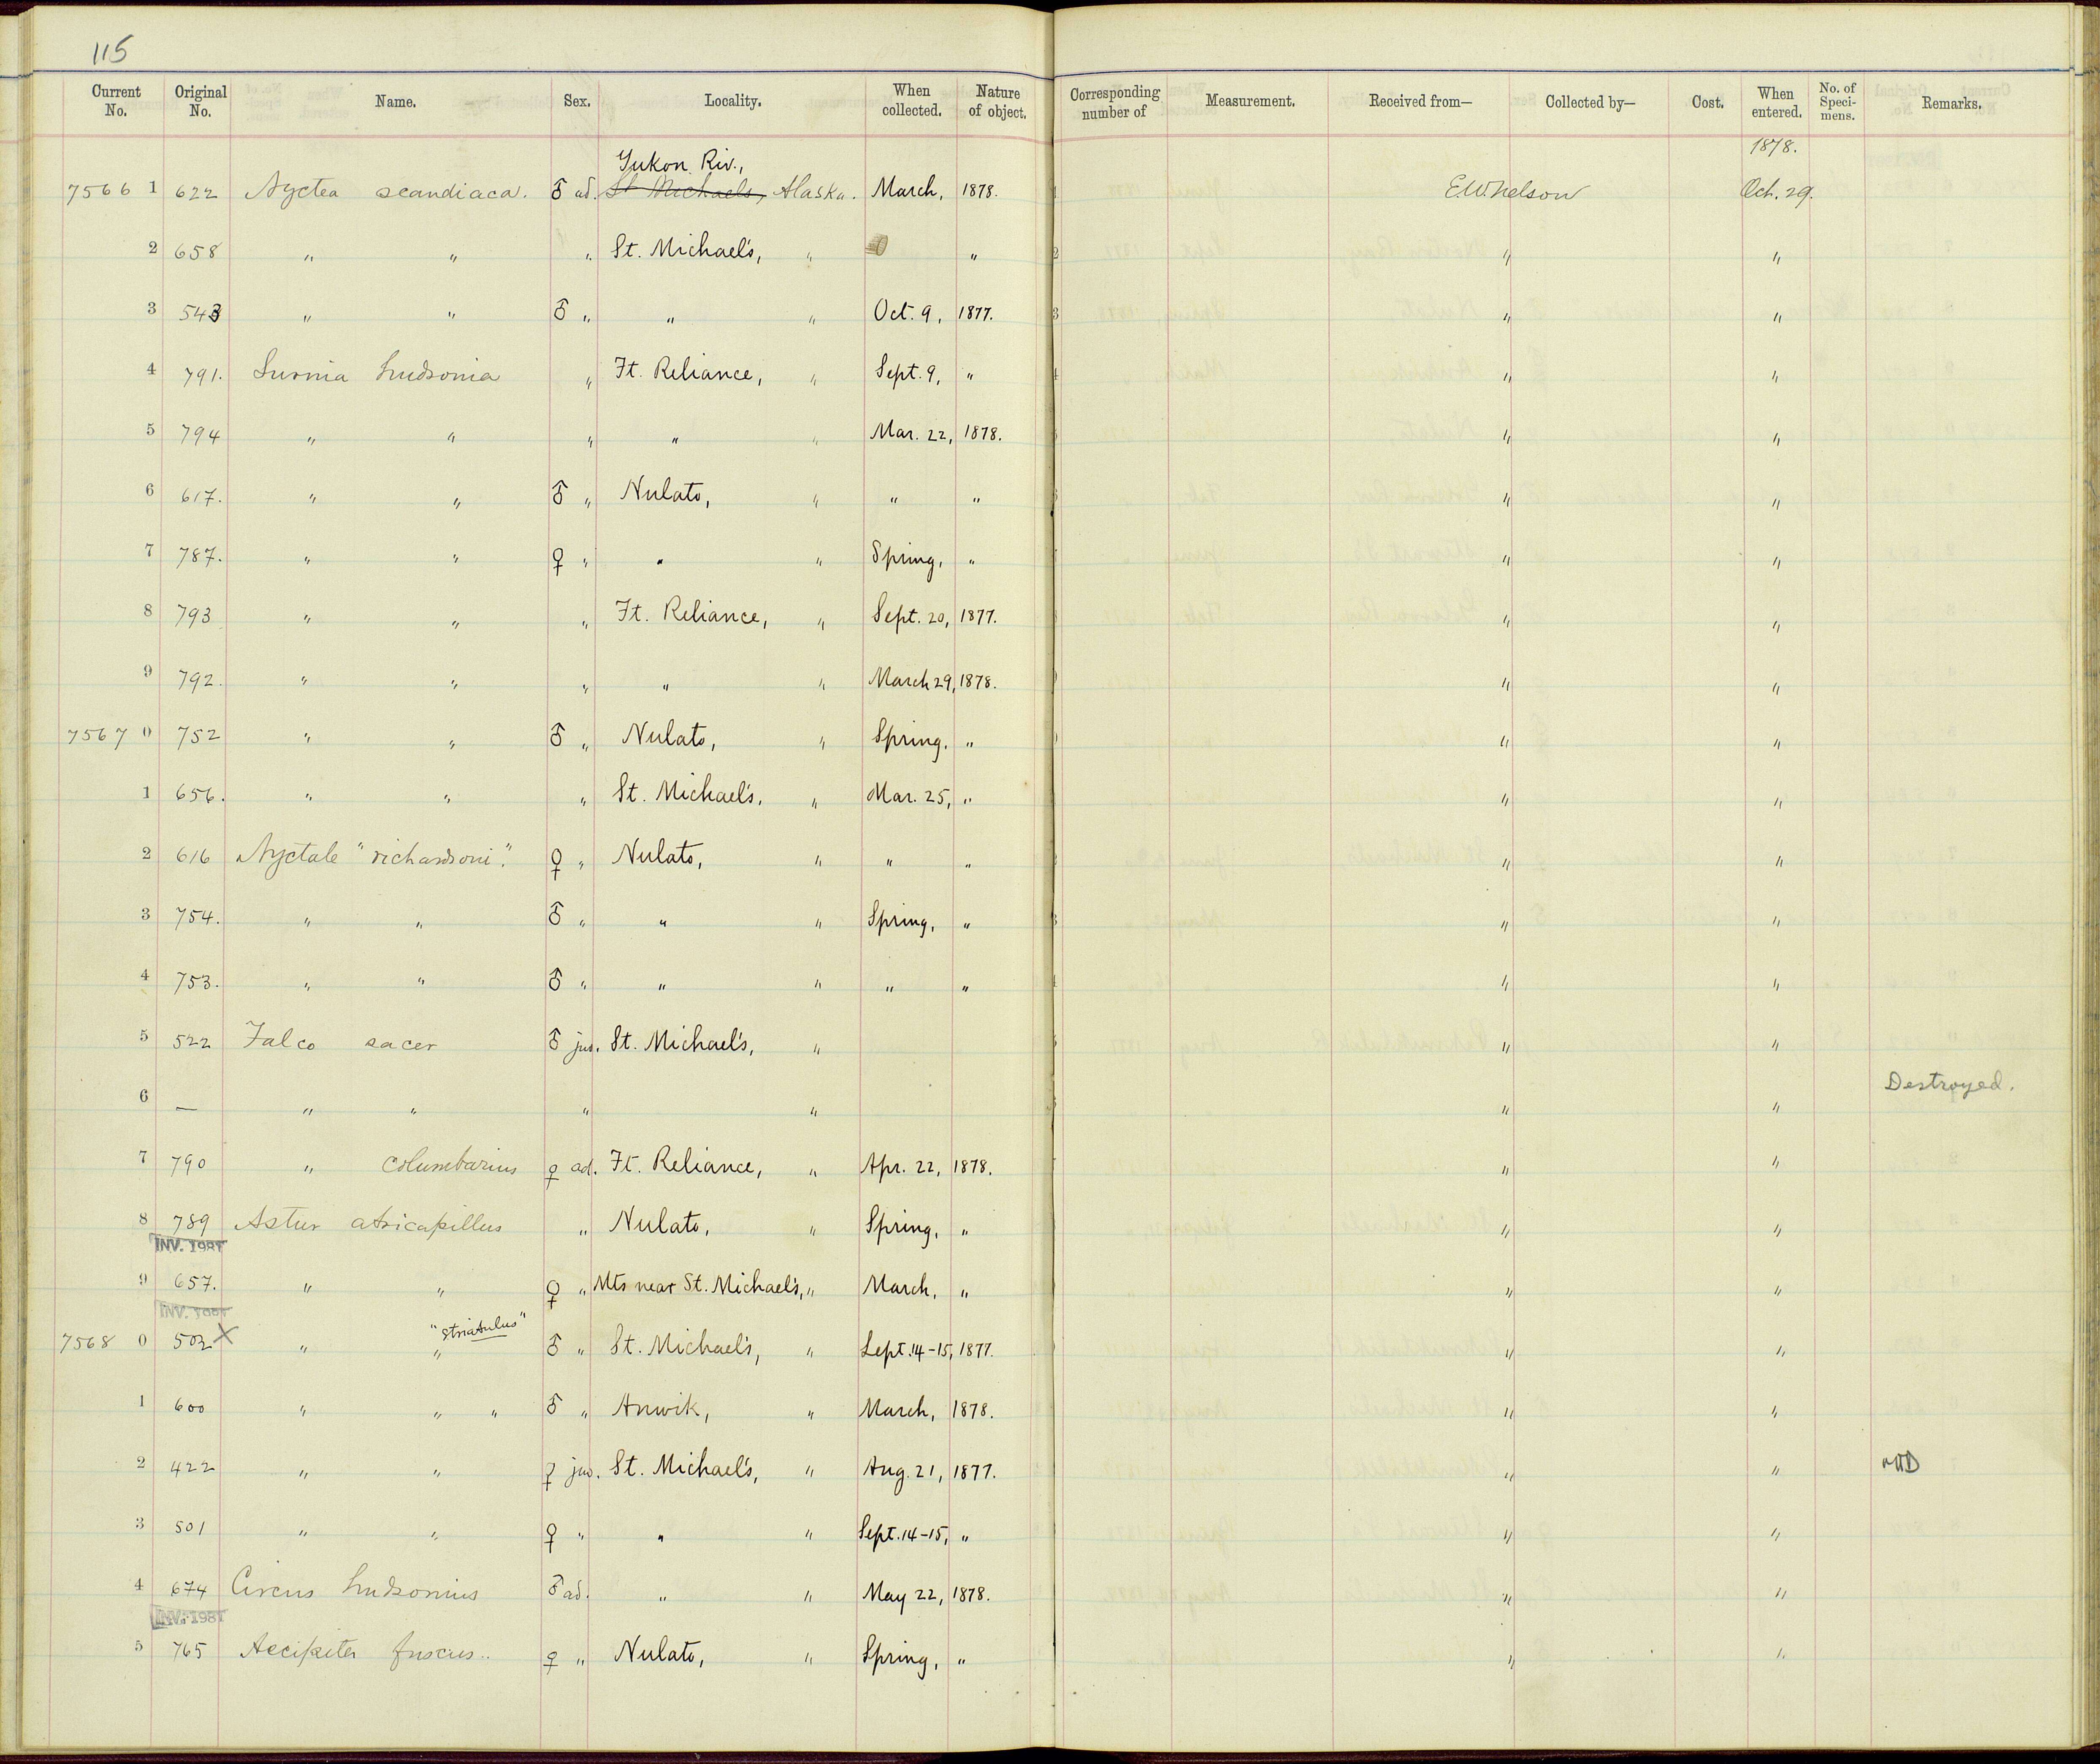 115
Current No. Original No. Name. Sex. Locality. When collected. Nature of object. Corresponding number of Measurement. Received from— Collected by— Cost. When entered. No. of Speci-mens. Remarks.
1878.
Yukon Riv.,
7566 1 622 Nyctea scandiaca. ♂ ad. St Michaels, Alaska. March, 1878. E.W. Nelson Oct. 29.
2 658 " " " St. Michael's, " " " "
3 543 " " ♂ " " " Oct. 9, 1877. " "
4 791. Surnia hudsonia " Ft. Reliance, " Sept. 9, " " "
5 794 " " " " " Mar. 22, 1878. " "
6 617. " " ♂ " Nulato, " " " " "
7 787. " " ♀ " " " Spring, " " "
8 793 " " " Ft. Reliance, " Sept. 20, 1877. " "
9 792. " " " " " March 29, 1878. " "
7567 0 752 " " ♂ " Nulato, " Spring. " " "
1 656. " " " St. Michael's, " Mar. 25, " " "
2 616 Nyctale "richardsoni". ♀ " Nulato, " " " " "
3 754. " " ♂ " " " Spring, " " "
4 753. " " ♂ " " " " " " "
5 522 Falco sacer ♂ juv. St. Michael's, " " "
6 — " " " " " " Destroyed.
7 790 " columbarius ♀ ad. Ft. Reliance, " Apr. 22, 1878. " "
8 789 Astur atricapillus " Nulato, " Spring, " " "
INV. 1981
9 657. " " ♀ " Mts near St. Michael's, " March, " " "
INV. 1981
"striatulus"
7568 0 502 X " " ♂ " St. Michael's, " Sept. 14-15, 1877. " "
1 600 " " " ♂ " Anvik, " March, 1878. " "
2 422 " " ♀ juv. St. Michael's, " Aug. 21, 1877. " "
3 501 " " ♀ " " " Sept. 14-15, " " "
4 674 Circus hudsonius ♂ ad. " " May 22, 1878. " "
INV. 1981
5 765 Accipiter fuscus.. ♀ " Nulato, " Spring, " " "